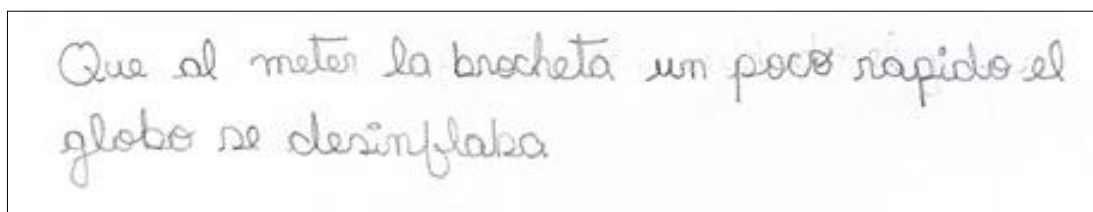 Que al meter la brocheta un poco rapido el
globo se desinflaba